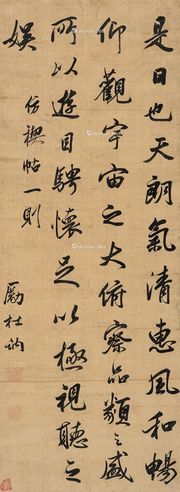 是日也天朗氣清惠風和暢
仰觀宇宙之大俯察品類之盛
所以遊目騁懷足以極視聽之
娛
仿禊帖一則
勵杜訥